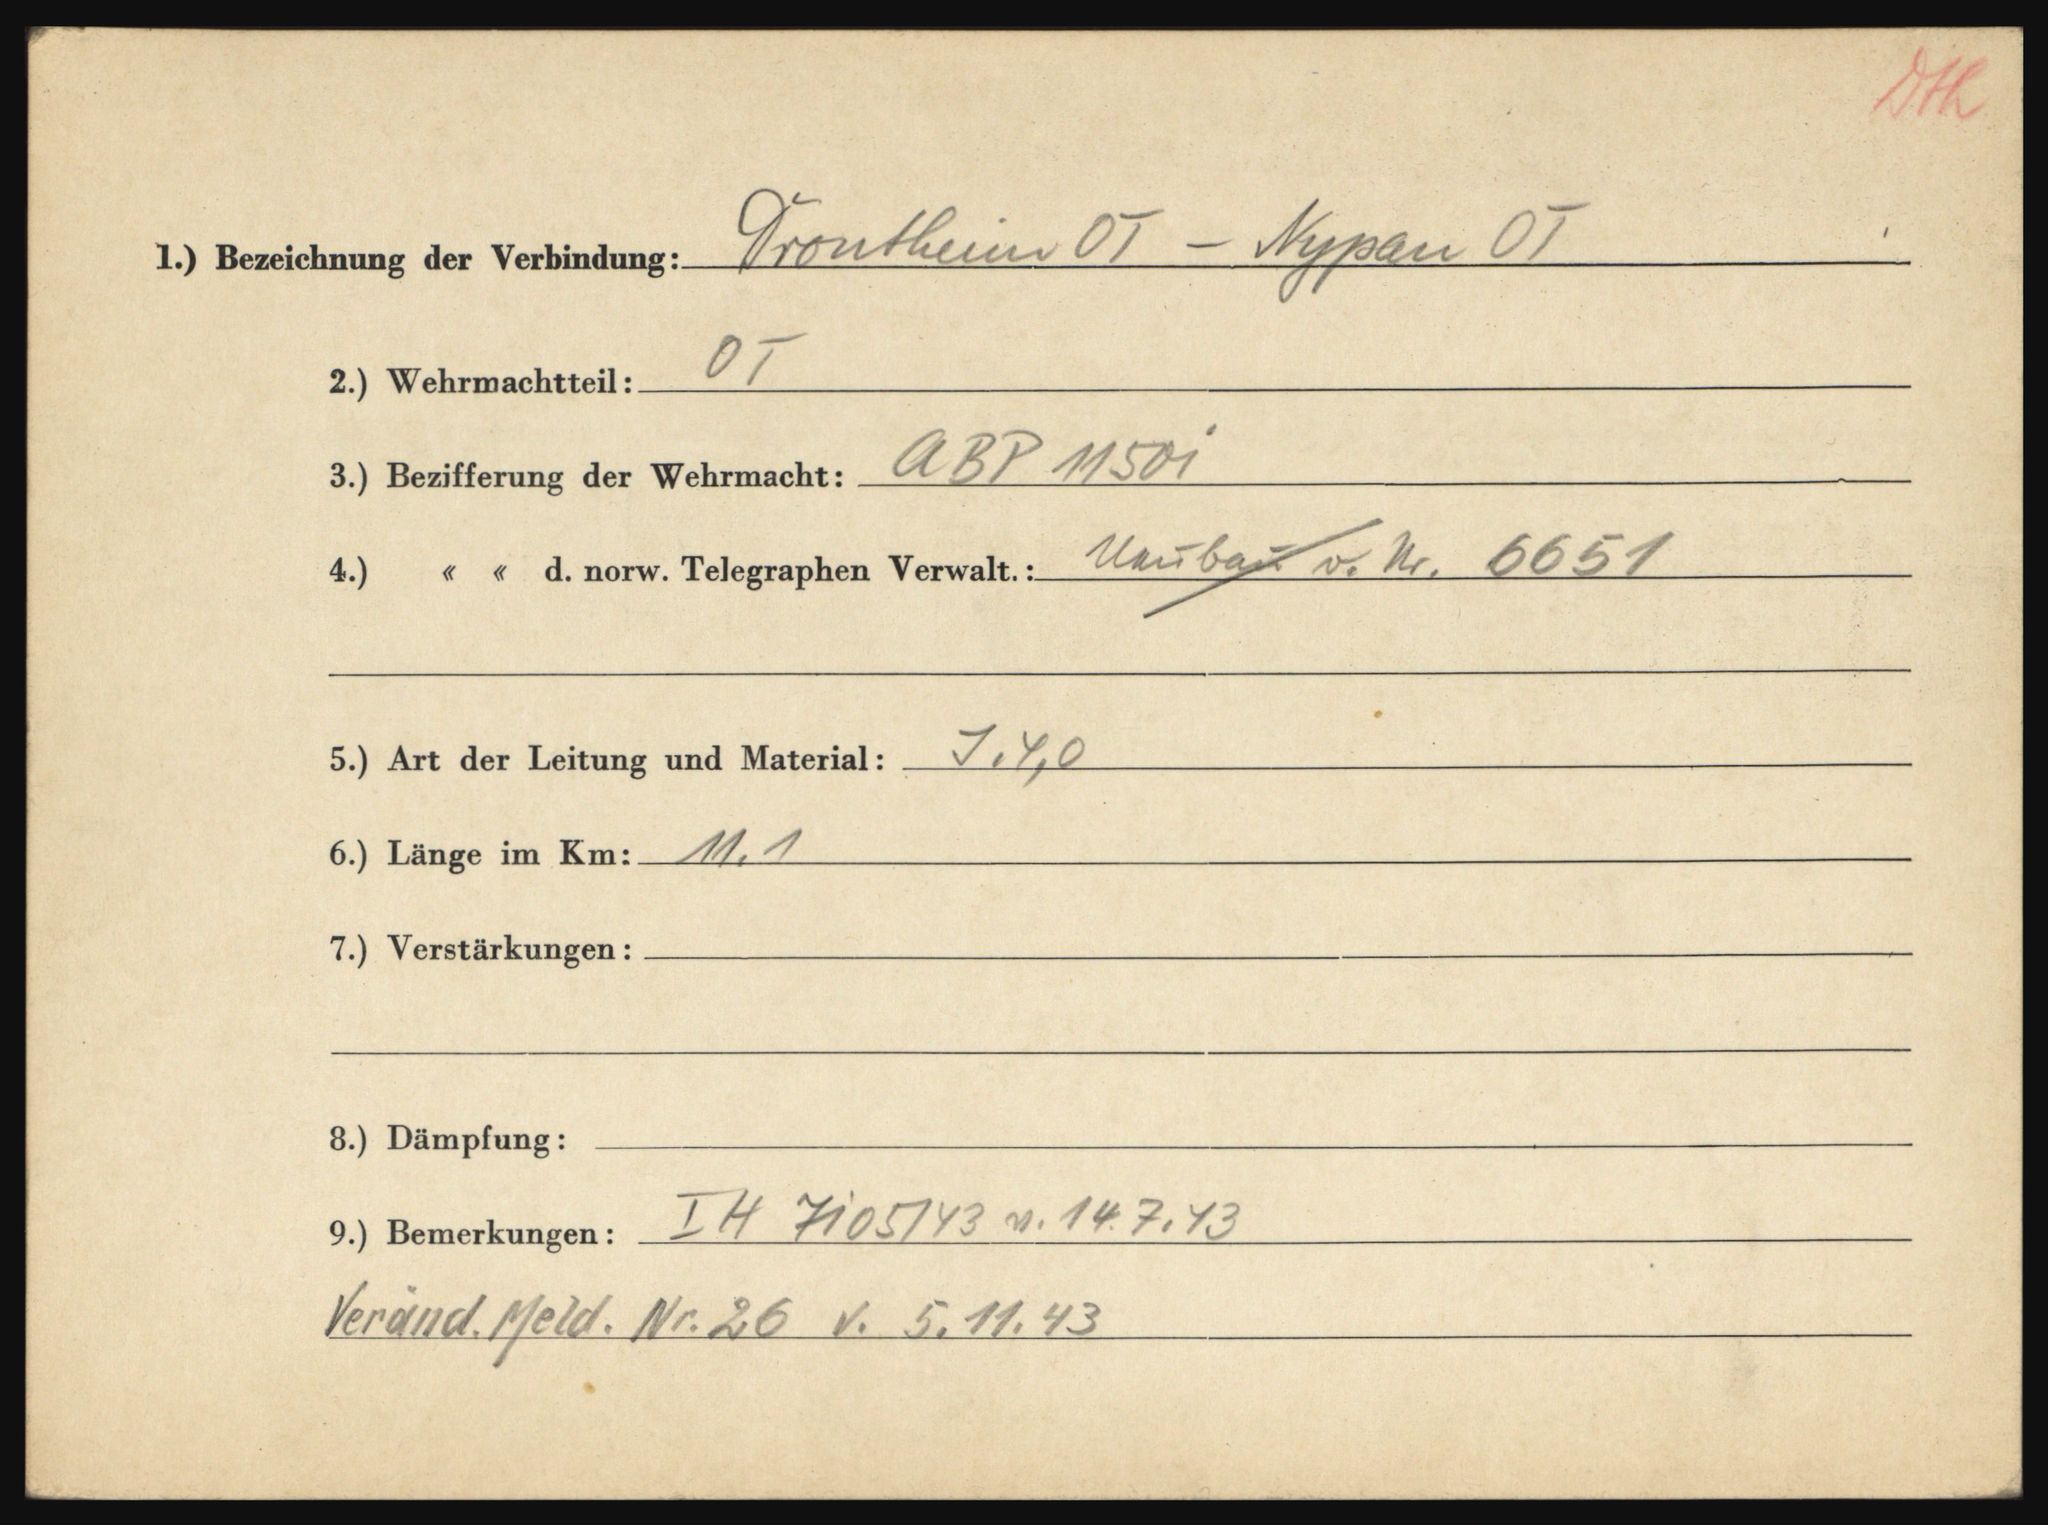 Dth
1.) Bezeichnung der Verbindung: Drontheim OT – Nypan OT
2.) Wehrmachtteil: OT
3.) Bezifferung der Wehrmacht: ABP 1150i
4.) « « d. norw. Telegraphen Verwalt.: Neubau v. Nr. 6651
5.) Art der Leitung und Material: J. 4,0
6.) Länge im Km: 11.1
7.) Verstärkungen:
8.) Dämpfung:
9.) Bemerkungen: IH 7105/43 v. 14.7.43
Veränd. Meld. Nr. 26 v. 5.11.43